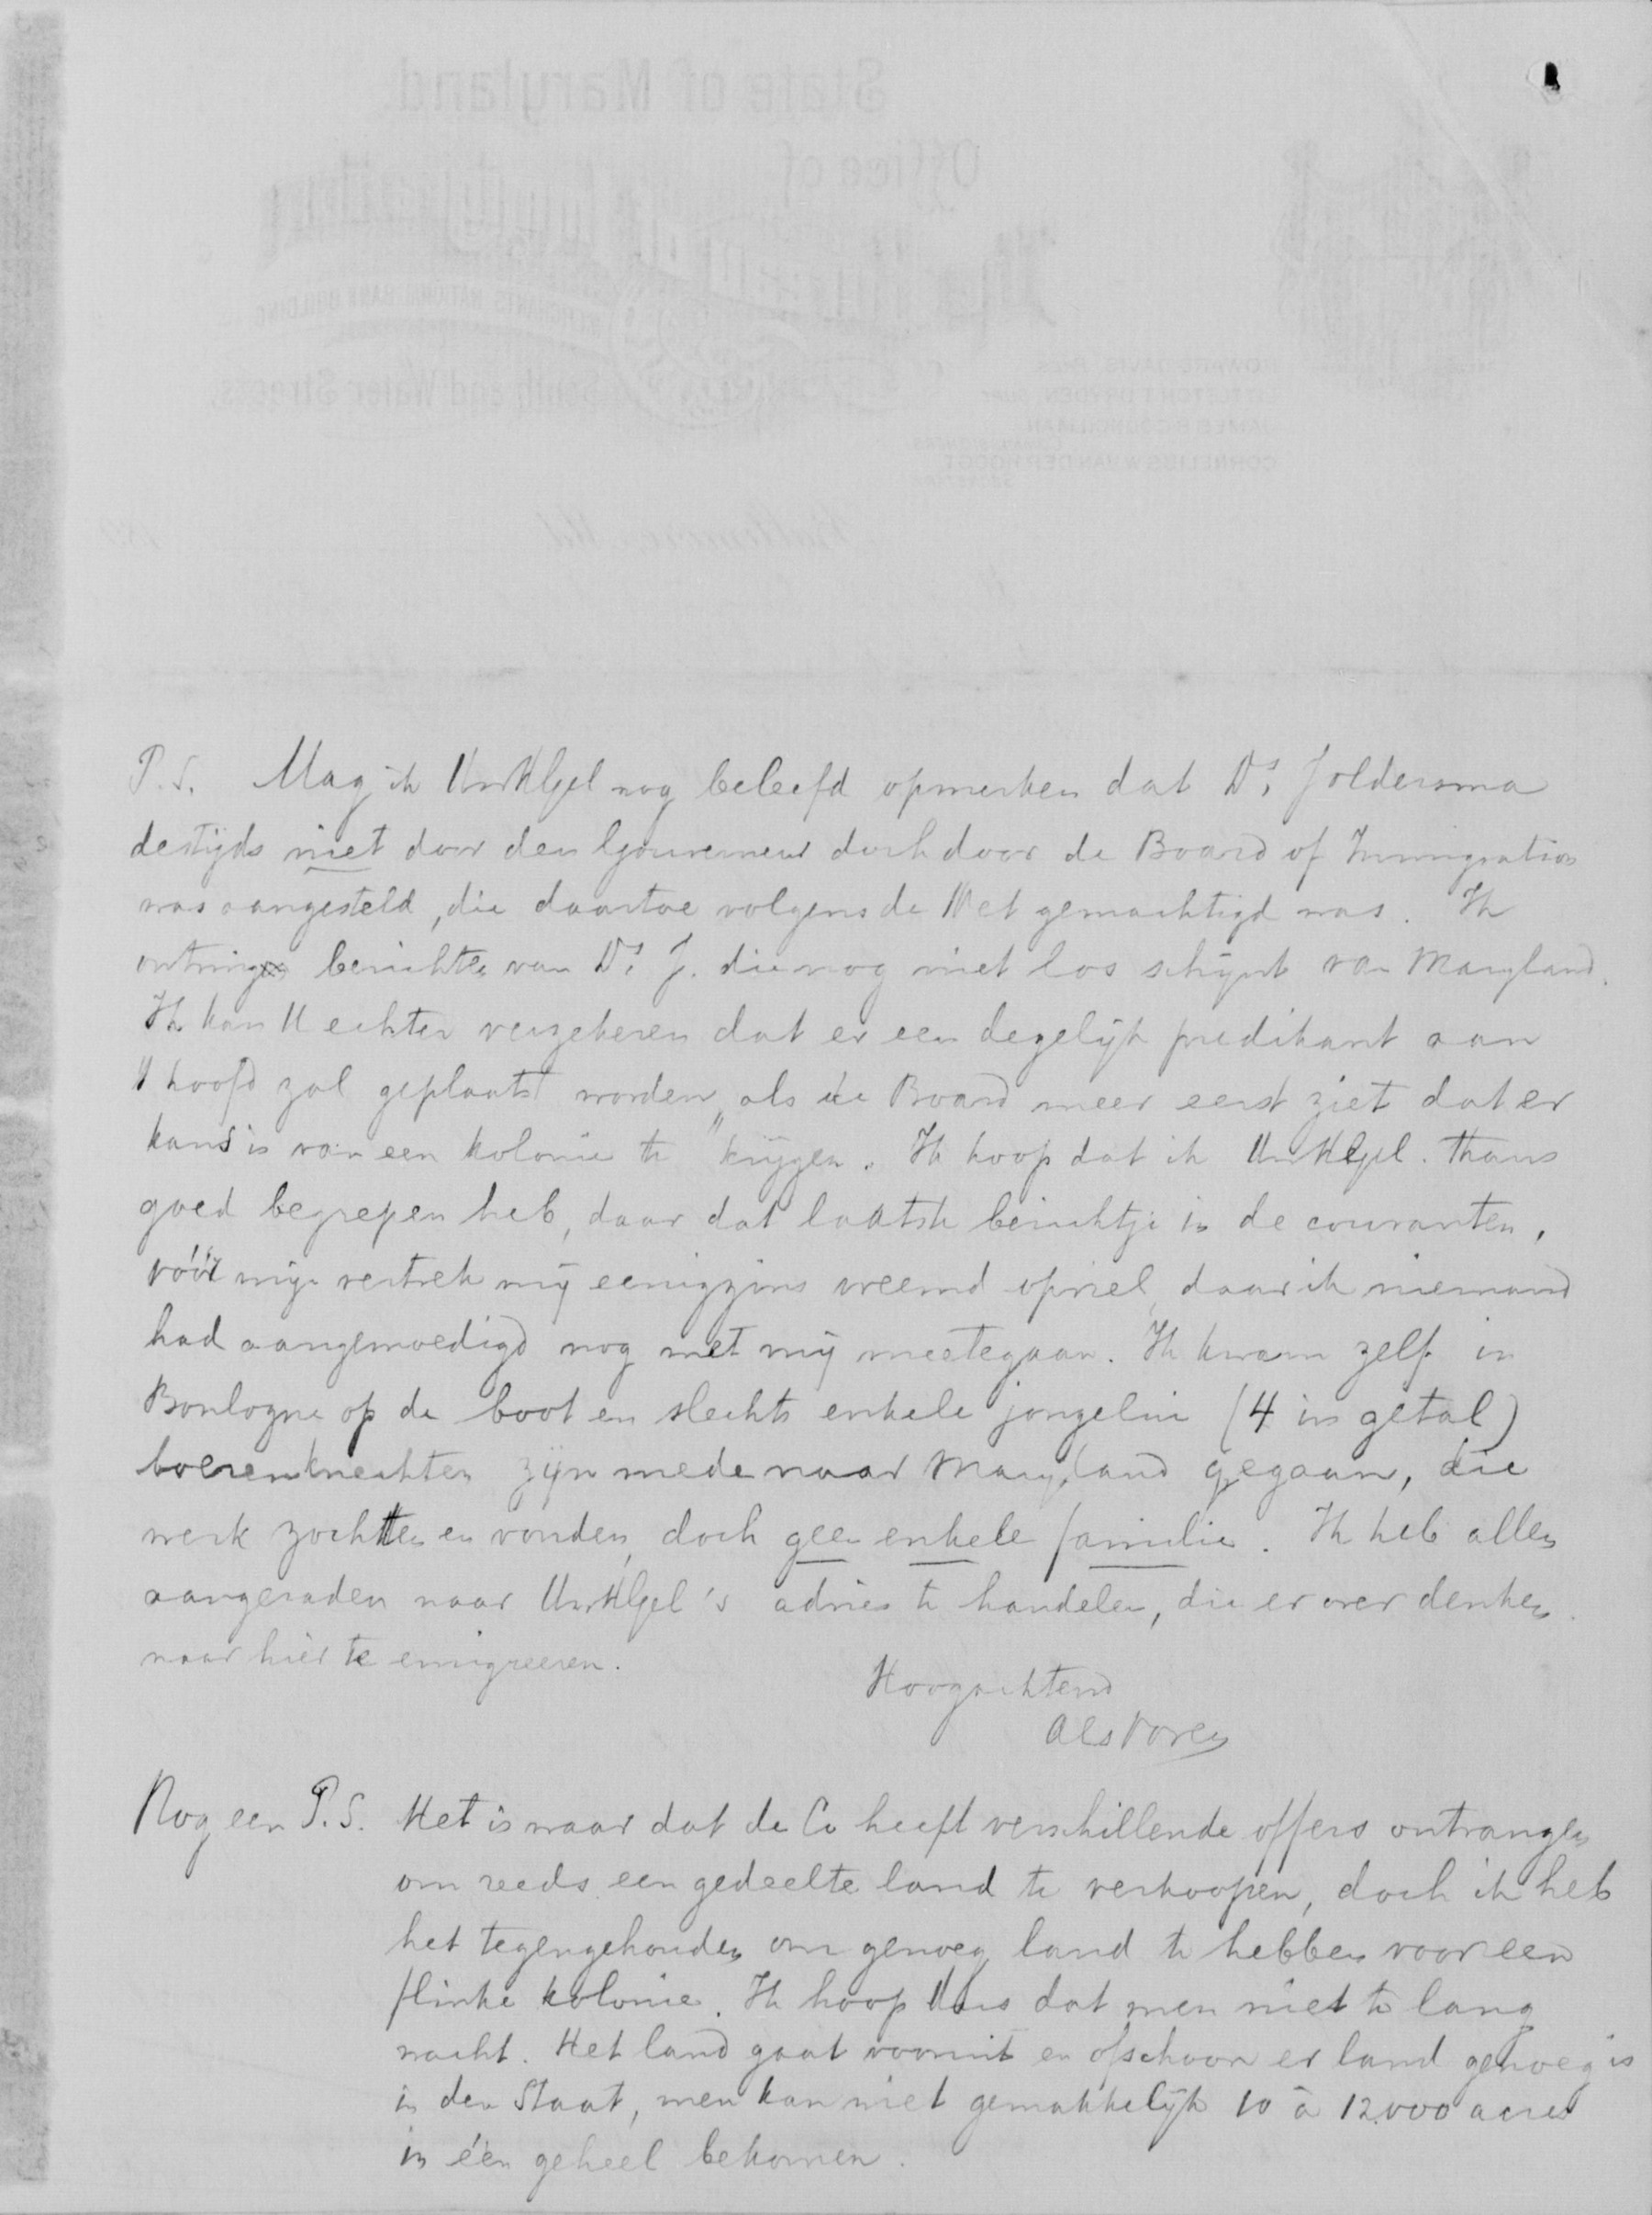 P.S. Mag ik UwHGel nog beleefd opmerken dat Ds Joldersma
destijds niet door den Gouverneur doch door de Board of Immigration
was aangesteld, die daartoe volgens de Wet gemachtigd was. Ik
ontving berichten van Ds J. die nog niet los schijnt van Maryland.
Ik kan U echter verzekeren dat er een degelijk predikant aan
't hoofd zal geplaatst worden, als de Board meer eerst ziet dat er
kans is van een kolonie te "krijgen. Ik hoop dat ik UwHGel. thans
goed begrepen heb, daar dat laatste berichtje in de couranten,
vóór mijn vertrek mij eenigzins vreemd opviel, daar ik niemand
had aangemoedigd nog met mij meetegaan. Ik kwam zelf in
Boulogne op de boot en slechts enkele jongelui (4 in getal)
boerenknechten zijn mede naar Maryland gegaan, die
werk zochten en vonden, doch geen enkele familie. Ik heb allen
aangeraden naar UwHGel's advies te handelen, die er over denken
naar hier te emigreeren.
Hoogachtend
Als Voren
Nog een P.S. Het is waar dat de Co heeft verschillende offers ontvangen
om reeds een gedeelte land te verkoopen, doch ik heb
het tegengehouden om genoeg land te hebben voor een
flinke kolonie. Ik hoop dus dat men niet te lang
wacht. Het land gaat vooruit en ofschoon er land genoeg is
in den Staat, men kan niet gemakkelijk 10 à 12.000 acres
in één geheel bekomen.